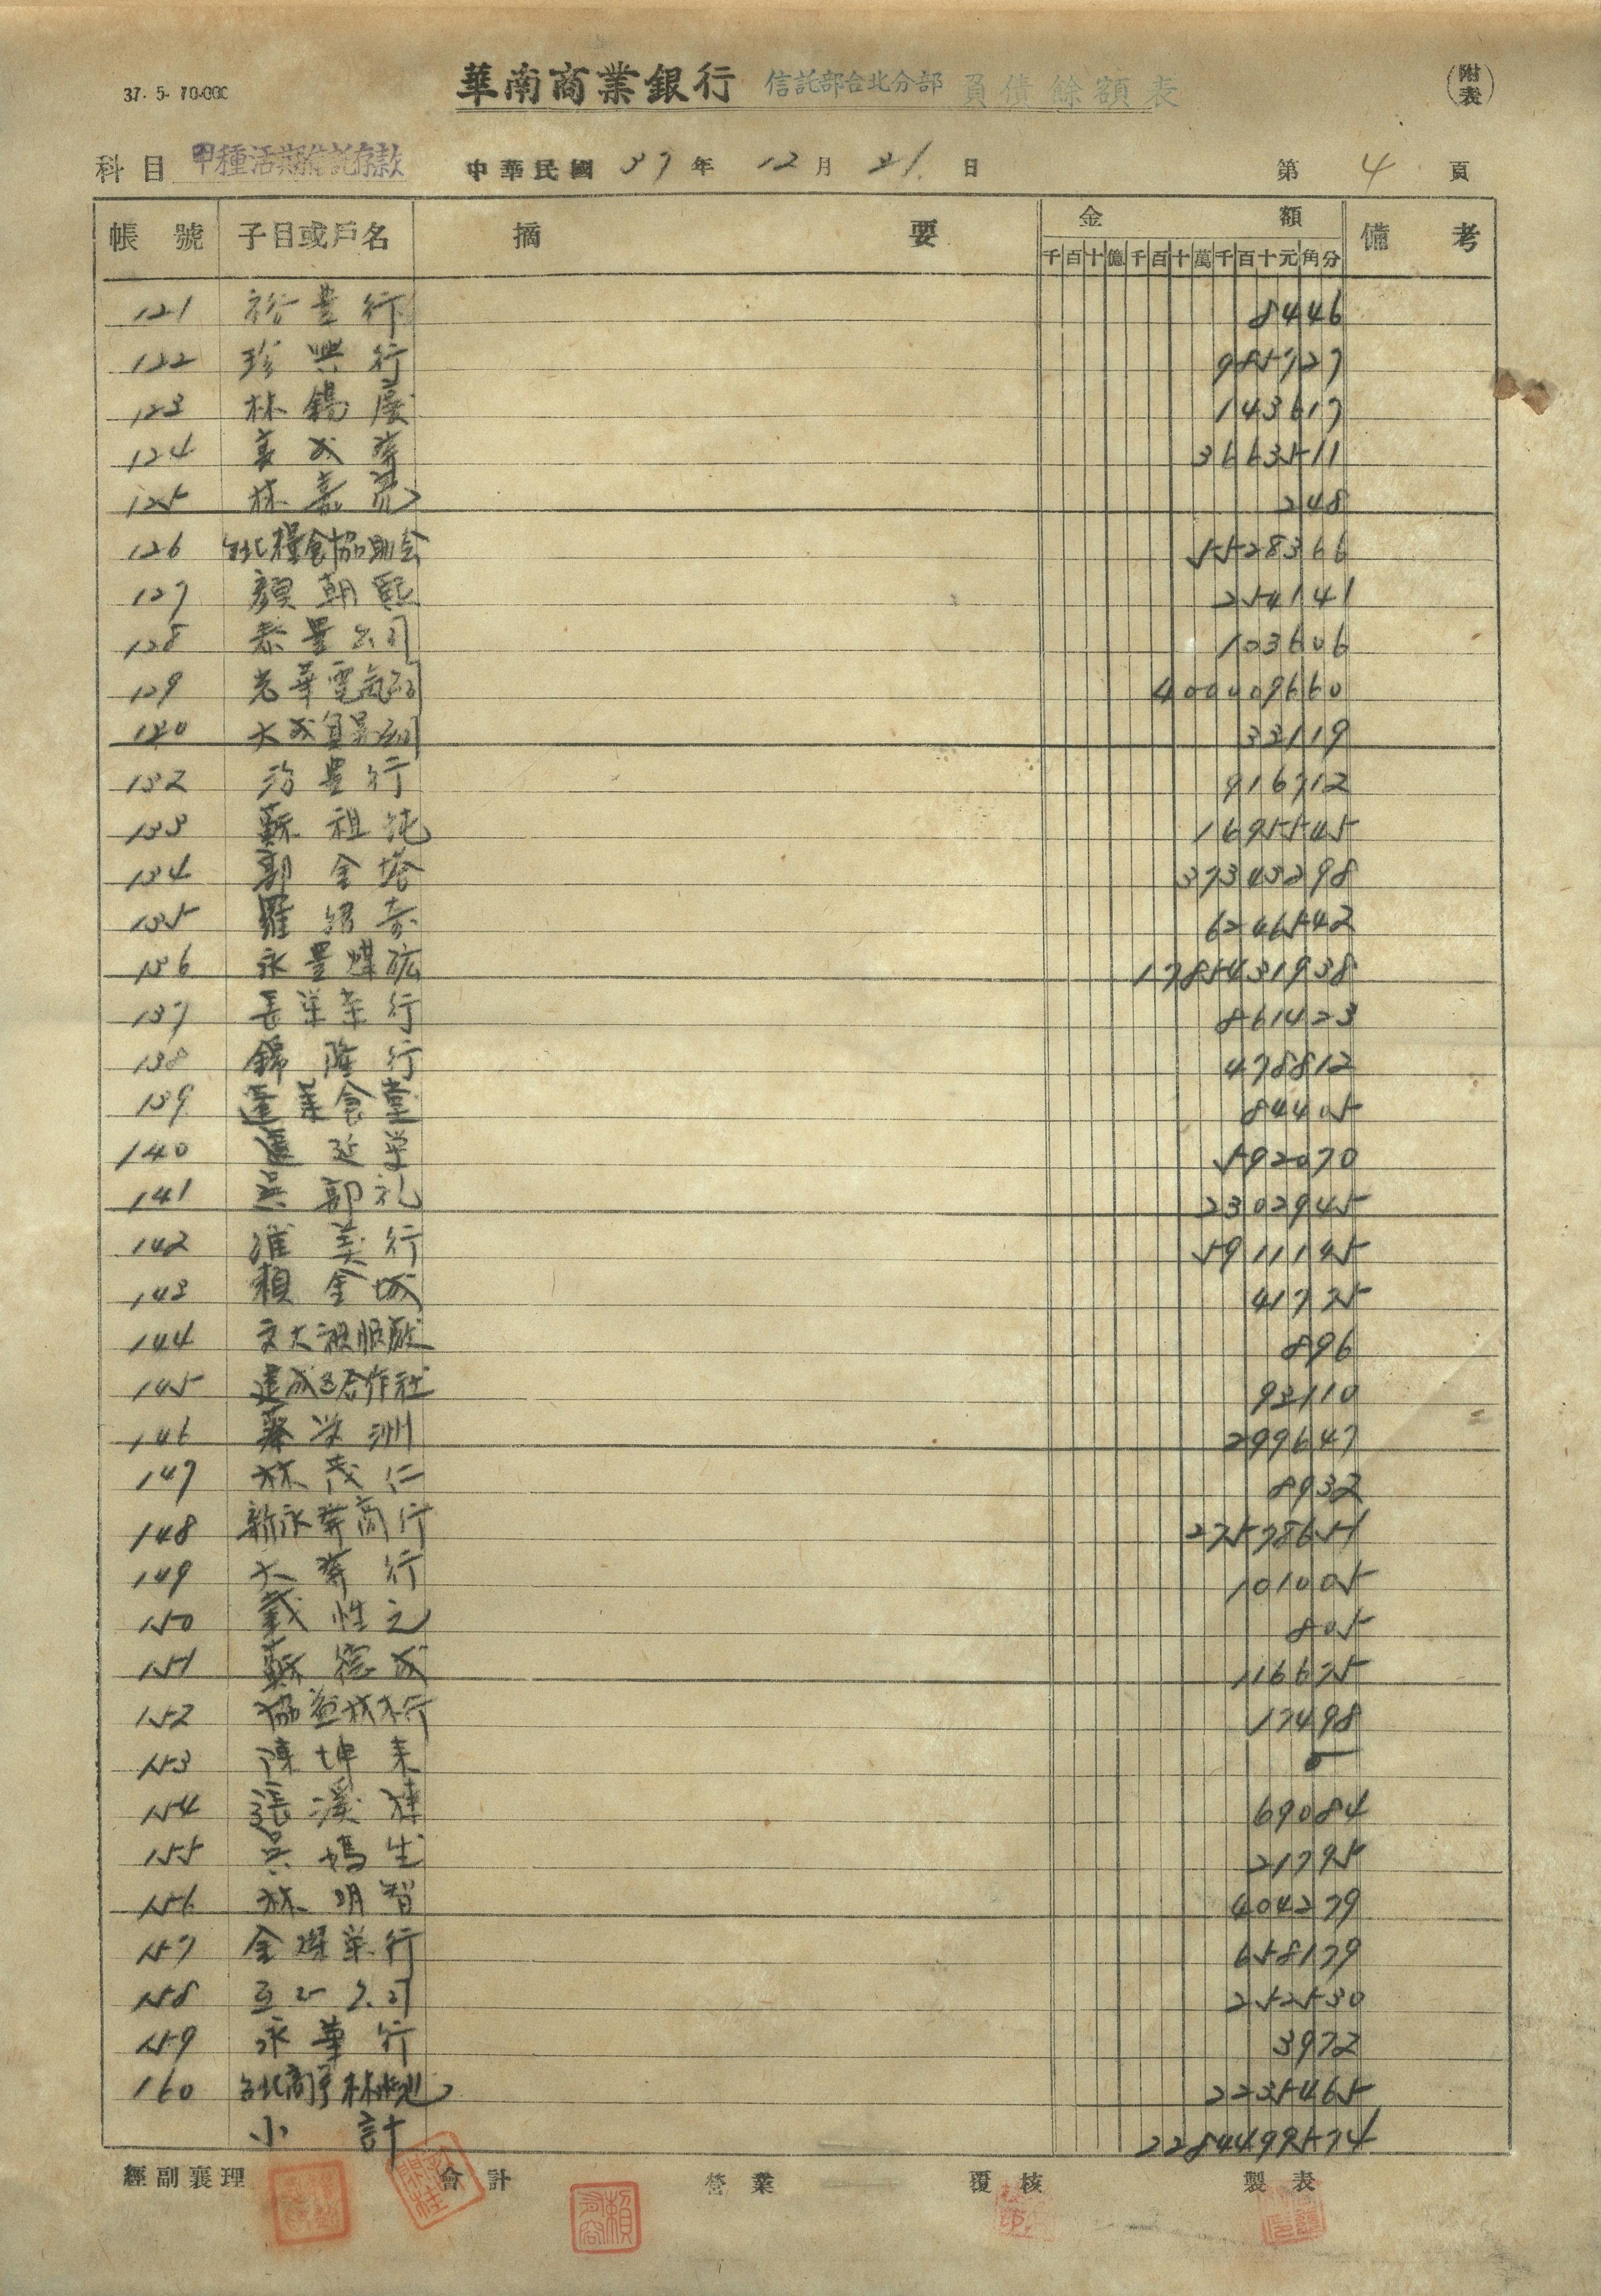 37. 5. 70.000
華南商業銀行 信託部台北分部 負債餘額表 (附表)
科目 甲種活期信託存款 中華民國 37年 12月 21日 第 4 頁
帳號 子目或戶名 摘要 金額 備考
千百十億千百十萬千百十元角分
121 裕豊行 8446
122 珍興行 985727
123 林錫慶 143617
124 義成 3663511
125 林嘉 248
126 台北糧食協助会 5528366
127 顏朝熙 254141
128 泰豊公司 103606
129 光華電氣公司 400009660
130 大成貿易公司 33119
132 治豊行 916712
133 蘇祖 1695545
134 郭金塔 37343298
135 羅紹奇 6246542
136 永豊煤砿 1785431938
137 長栄茶行 861423
138 錦隆行 478812
139 蓬萊食堂 84405
140 延学 592070
141 吳郭礼 2302945
142 淮美行 5911145
143 賴金城 41775
144 文大被服廠 896
145 建成区合作社 93110
146 蔡栄洲 299647
147 林茂仁 8932
148 新永華商行 27578651
149 大華行 101005
150 戴性之 805
151 蘇德成 116675
152 協益材木行 17498
153 陳坤来
154 張溪 69084
155 吳媽生 21795
156 林明智 404279
157 金瑞栄行 658179
158 互二公司 252530
159 永華行 3972
160 台北商事林 2235465
小計 2284499574
經副襄理 會計 營業 覆核 製表